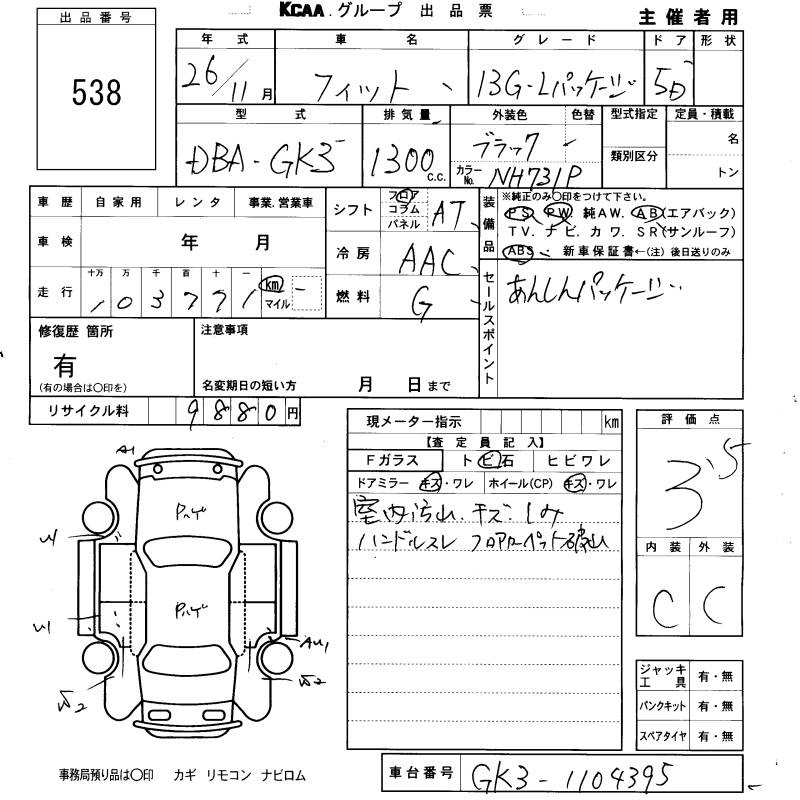 KCAA.グループ 出品票
主催者用
出品番号
538
年式 車名 グレード ドア 形状
26/11月 フィット 13G-Lパッケージ 5D
型式 排気量 外装色 色替 型式指定 定員・積載
DBA-GK5 1300c.c. ブラック 名
カラーNo. NH731P 類別区分 トン
車歴 自家用 レンタ 事業.営業車
車検 年 月
走行 十万 万 千 百 十 一
103771 km マイル
シフト フロア コラム パネル AT
冷房 AAC
燃料 G
装備品
※純正のみ〇印をつけて下さい。
PS PW 純AW. AB(エアバック)
TV. ナビ. カワ. SR(サンルーフ)
ABS・ 新車保証書←(注) 後日送りのみ
セールスポイント
あんしんパッケージ
修復歴 箇所
有
(有の場合は〇印を)
注意事項
名変期日の短い方 月 日まで
リサイクル料 9880円
現メーター指示 km
【査定員記入】
Fガラス トビ石 ヒビワレ
ドアミラー キズ・ワレ ホイール(CP) キズ・ワレ
室内汚れ.キズ.しみ
ハンドルスレ フロアカーペット破れ
評価点
3.5
内装 外装
C C
ジャッキ工具 有・無
パンクキット 有・無
スペアタイヤ 有・無
A1
Pハゲ
U1
Pハゲ
U1
AU1
S2
S2
事務局預り品は〇印 カギ リモコン ナビロム
車台番号 GK3-1104395